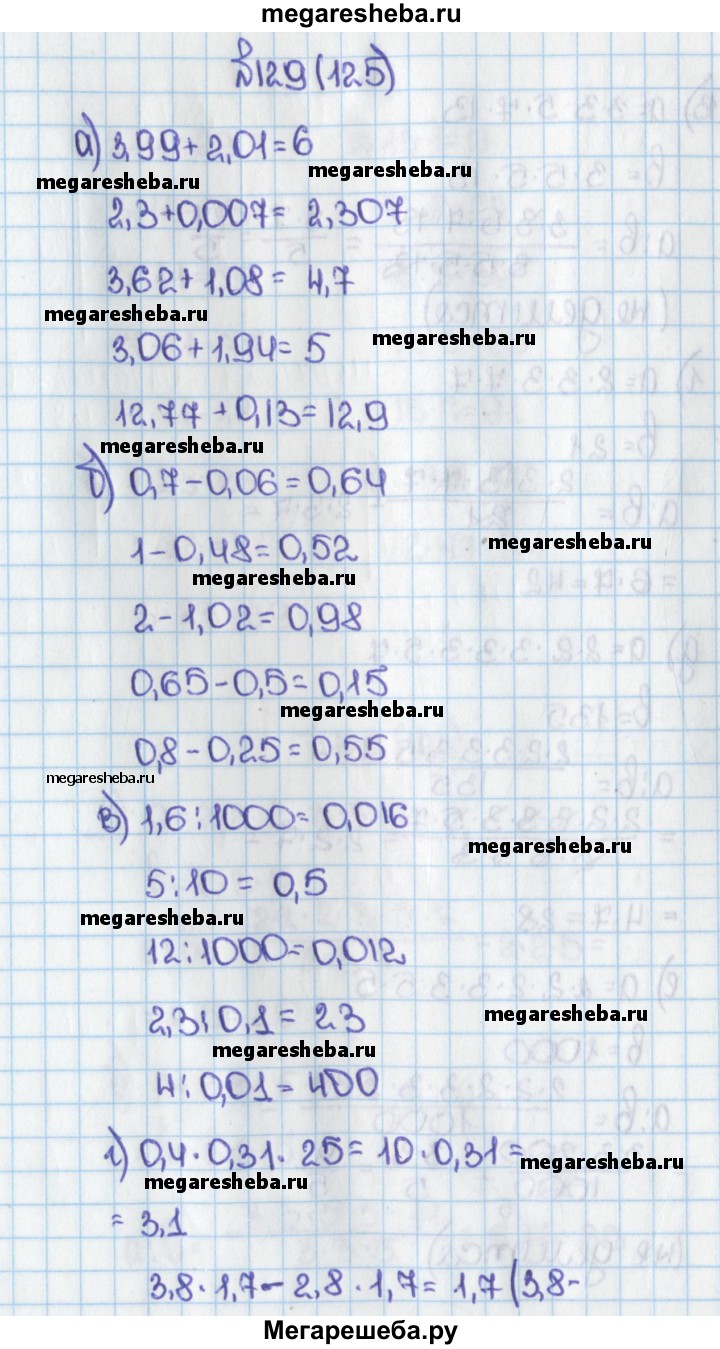 megaresheba.ru
№129 (125)
а) 3,99 + 2,01 = 6
megaresheba.ru
megaresheba.ru
2,3 + 0,007 = 2,307
3,62 + 1,08 = 4,7
megaresheba.ru
megaresheba.ru
3,06 + 1,94 = 5
12,77 + 0,13 = 12,9
megaresheba.ru
б) 0,7 - 0,06 = 0,64
megaresheba.ru
1 - 0,48 = 0,52
megaresheba.ru
2 - 1,02 = 0,98
0,65 - 0,5 = 0,15
megaresheba.ru
0,8 - 0,25 = 0,55
megaresheba.ru
в) 1,6 : 1000 = 0,016
megaresheba.ru
5 : 10 = 0,5
megaresheba.ru
12 : 1000 = 0,012
megaresheba.ru
2,3 : 0,1 = 23
megaresheba.ru
4 : 0,01 = 400
г) 0,4 · 0,31 · 25 = 10 · 0,31 =
megaresheba.ru
megaresheba.ru
= 3,1
3,8 · 1,7 - 2,8 · 1,7 = 1,7 (3,8 -
Мегарешеба.ру